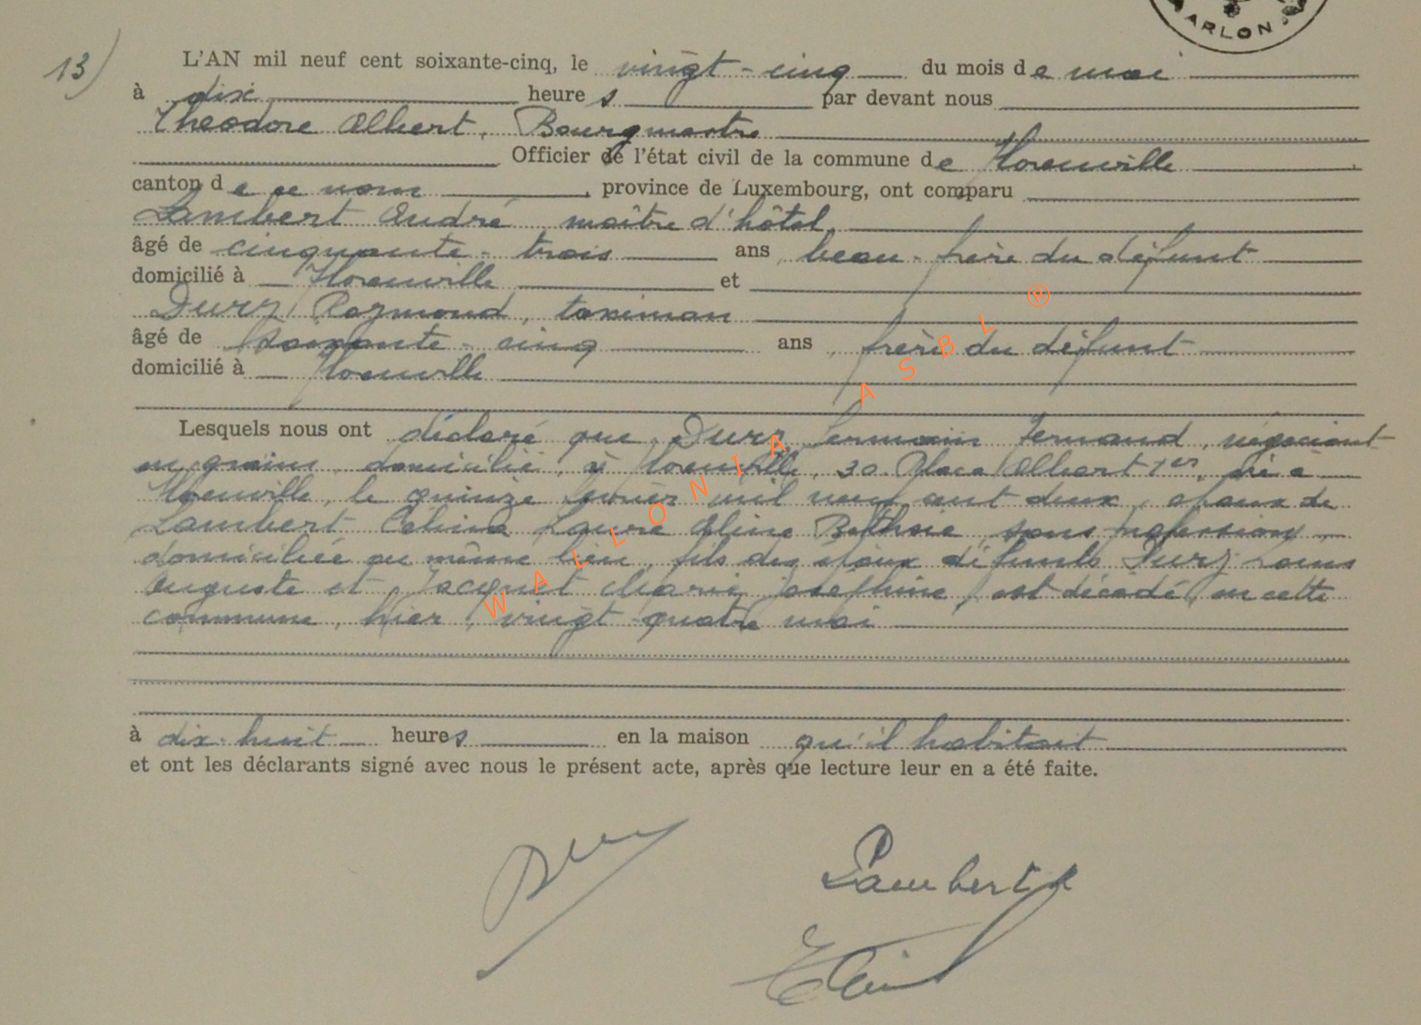 ARLON
13)
L'AN mil neuf cent soixante-cinq, le vingt-cinq du mois de mai
à dix heures par devant nous
Théodore Albert, Bourgmestre
Officier de l'état civil de la commune de Florenville
canton de ce nom, province de Luxembourg, ont comparu
Lambert André maître d'hôtel
âgé de cinquante-trois ans, beau-frère du défunt
domicilié à Florenville et
Durz Raymond, taximan
âgé de soixante-cinq ans, frère du défunt
domicilié à Florenville
Lesquels nous ont déclaré que Durz Germain Fernand, négociant
en grains, domicilié à Florenville, 30 Place Albert 1er, né à
Florenville, le quinze février mil neuf cent deux, époux de
Lambert Laure Aline sans profession,
domiciliée au même lieu, fils des époux défunts Durz Louis
Auguste et Jacquet Marie Joséphine, est décédé, en cette
commune, hier, vingt-quatre mai
à dix-huit heures en la maison qu'il habitait
et ont les déclarants signé avec nous le présent acte, après que lecture leur en a été faite.
WALLONIA ASBL ®
Lambert